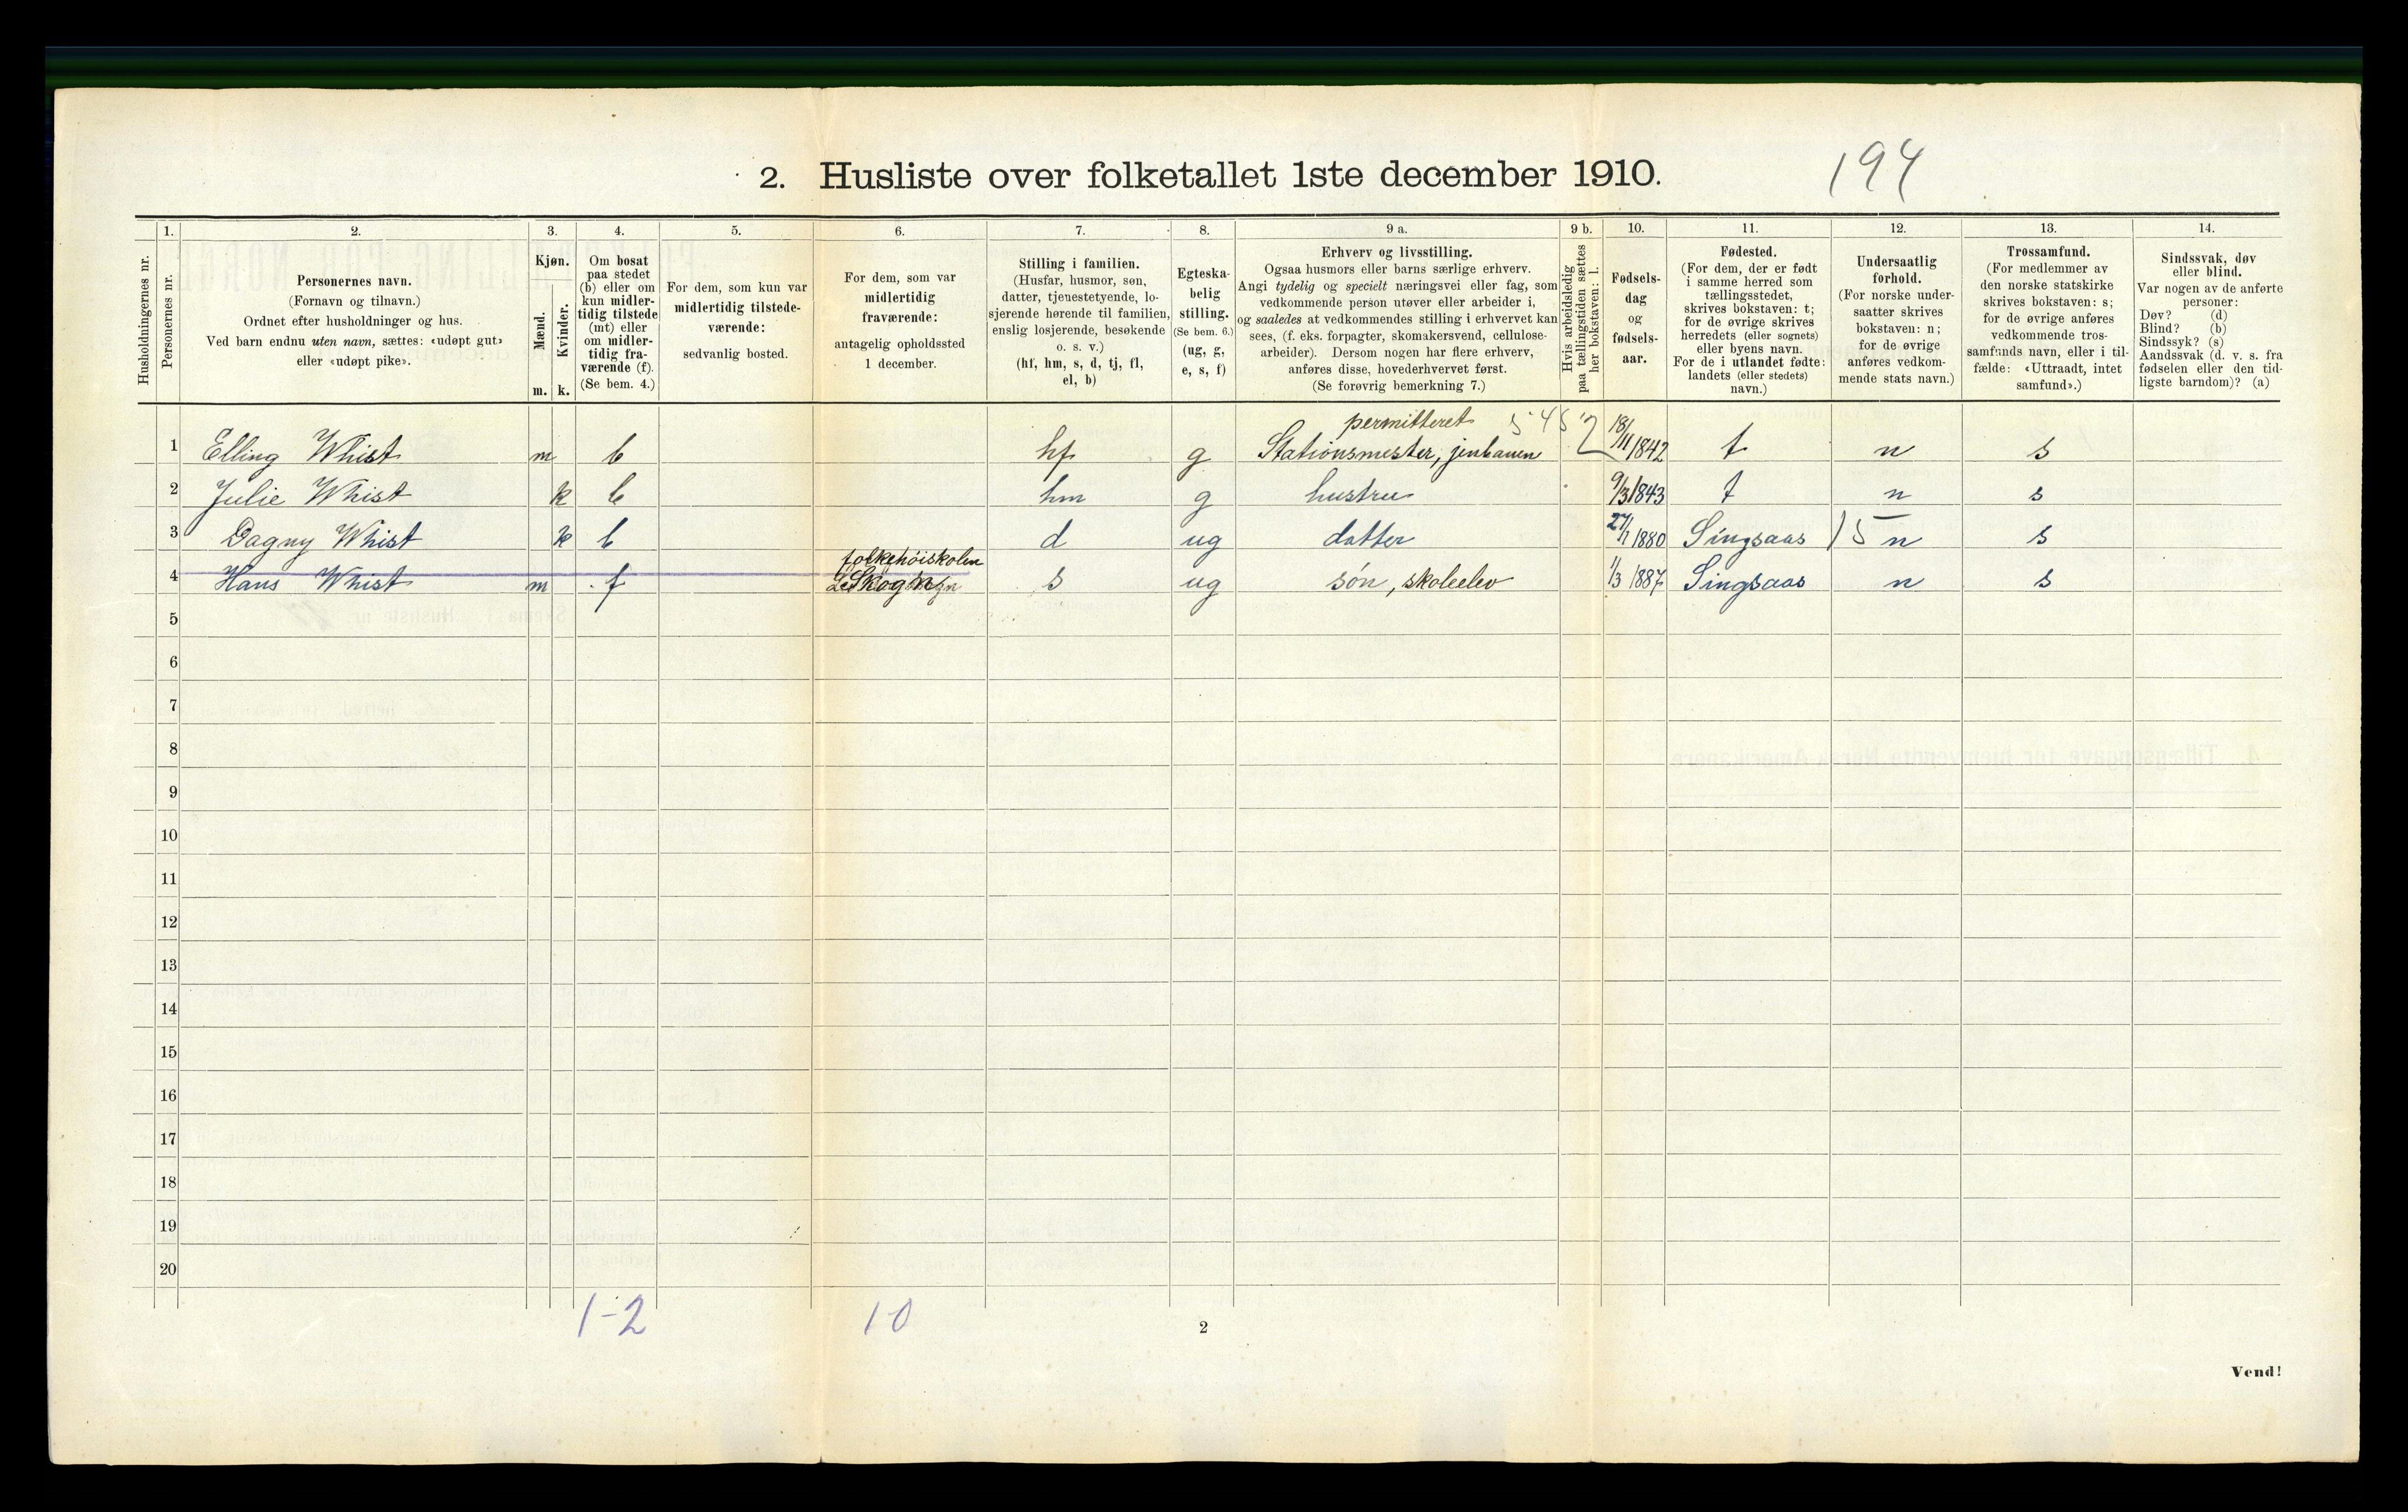 2. Husliste over folketallet 1ste december 1910.
194
Husholdningernes nr.
1.
Personernes nr.
2.
Personernes navn.
(Fornavn og tilnavn.)
Ordnet efter husholdninger og hus.
Ved barn endnu uten navn, sættes: «udøpt gut»
eller «udøpt pike».
3.
Kjøn.
Mænd.
Kvinder.
m. k.
4.
Om bosat
paa stedet
(b) eller om
kun midler-
tidig tilstede
(mt) eller
om midler-
tidig fra-
værende (f).
(Se bem. 4.)
5.
For dem, som kun var
midlertidig tilstede-
værende:
sedvanlig bosted.
6.
For dem, som var
midlertidig
fraværende:
antagelig opholdssted
1 december.
7.
Stilling i familien.
(Husfar, husmor, søn,
datter, tjenestetyende, lo-
sjerende hørende til familien,
enslig losjerende, besøkende
o. s. v.)
(hf, hm, s, d, tj, fl,
el, b)
8.
Egteska-
belig
stilling.
(Se bem. 6.)
(ug, g,
e, s, f)
9 a.
Erhverv og livsstilling.
Ogsaa husmors eller barns særlige erhverv.
Angi tydelig og specielt næringsvei eller fag, som
vedkommende person utøver eller arbeider i,
og saaledes at vedkommendes stilling i erhvervet kan
sees, (f. eks. forpagter, skomakersvend, cellulose-
arbeider). Dersom nogen har flere erhverv,
anføres disse, hovederhvervet først.
(Se forøvrig bemerkning 7.)
9 b.
Hvis arbeidsledig
paa tællingstiden sættes
her bokstaven: l.
10.
Fødsels-
dag
og
fødsels-
aar.
11.
Fødested.
(For dem, der er født
i samme herred som
tællingsstedet,
skrives bokstaven: t;
for de øvrige skrives
herredets (eller sognets)
eller byens navn.
For de i utlandet fødte:
landets (eller stedets)
navn.)
12.
Undersaatlig
forhold.
(For norske under-
saatter skrives
bokstaven: n;
for de øvrige
anføres vedkom-
mende stats navn.)
13.
Trossamfund.
(For medlemmer av
den norske statskirke
skrives bokstaven: s;
for de øvrige anføres
vedkommende tros-
samfunds navn, eller i til-
fælde: «Uttraadt, intet
samfund».)
14.
Sindssvak, døv
eller blind.
Var nogen av de anførte
personer:
Døv? (d)
Blind? (b)
Sindssyk? (s)
Aandssvak (d. v. s. fra
fødselen eller den tid-
ligste barndom)? (a)
permitteret
1 Elling Whist m b hf g Stationsmester, jenbanen 18/11 1842 t n s
2 Julie Whist k b hm g hustru 9/3 1843 t n s
3 Dagny Whist k b d ug datter 27/1 1880 Singsaas 15 n s
folkehøiskolen
4 Hans Whist m f Skogn s ug søn, skoleelev 1/3 1887 Singsaas n s
5
6
7
8
9
10
11
12
13
14
15
16
17
18
19
20
1-2 10
2
Vend!